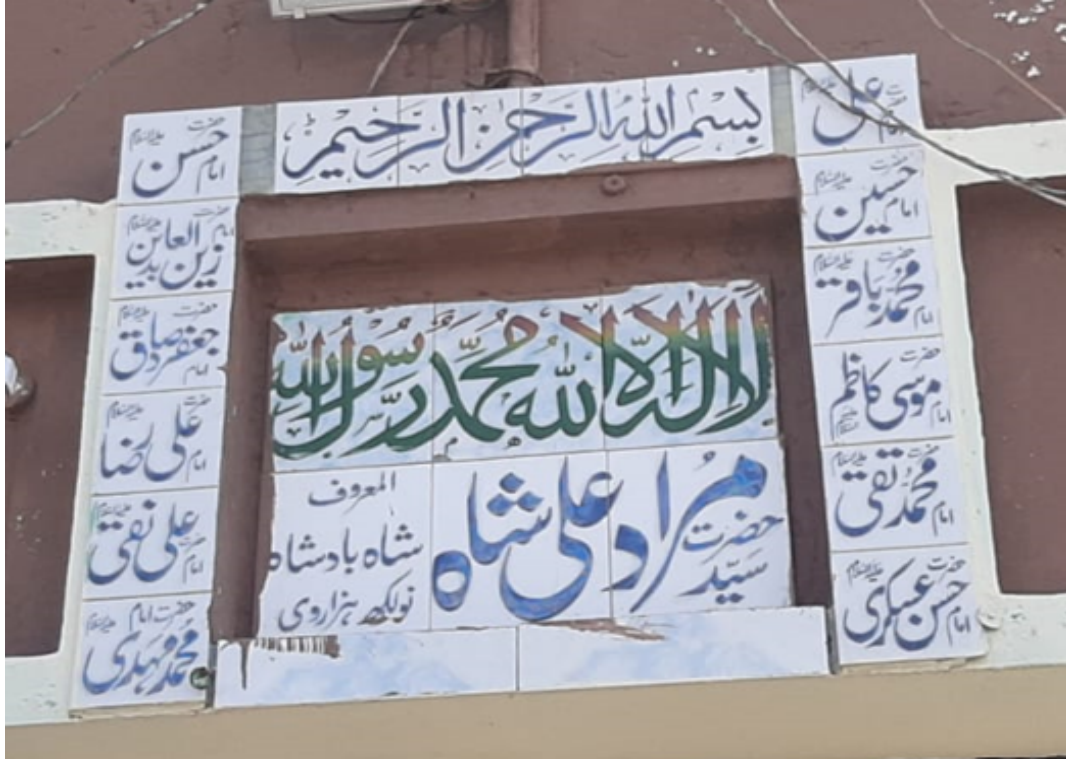 بسم الله الرحمن الرحيم
حضرت امام علی علیہ السلام
حضرت امام حسن علیہ السلام
حضرت امام حسین علیہ السلام
حضرت امام زین العابدین علیہ السلام
حضرت امام محمد باقر علیہ السلام
حضرت امام جعفر صادق علیہ السلام
حضرت امام موسیٰ کاظم علیہ السلام
حضرت امام علی رضا علیہ السلام
حضرت امام محمد تقی علیہ السلام
حضرت امام علی نقی علیہ السلام
حضرت امام حسن عسکری علیہ السلام
حضرت امام محمد مہدی علیہ السلام
لا اله الا الله محمد رسول الله
حضرت سیّد مُراد علی شاہ
المعروف
شاہ بادشاہ
نولکھ ہزاروی